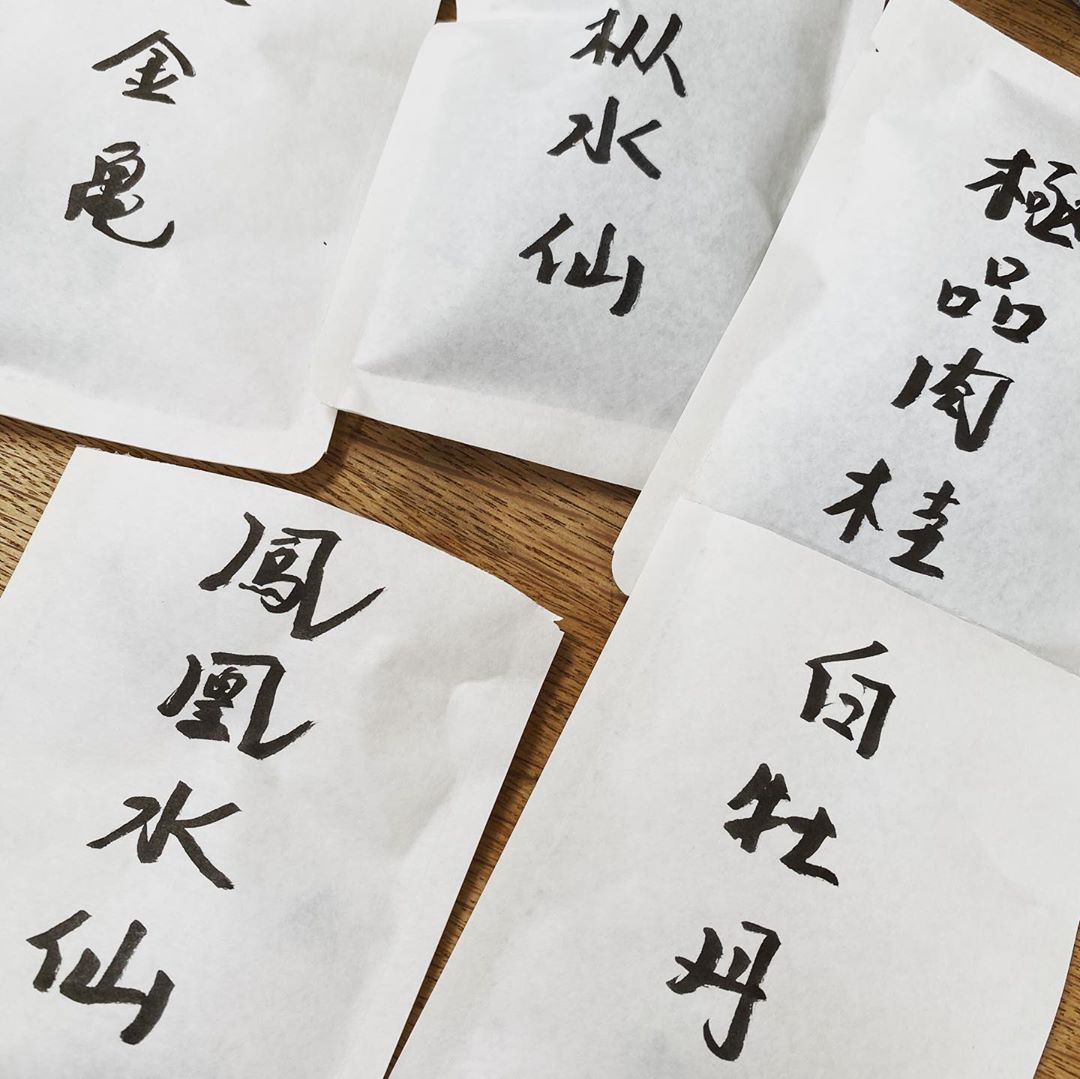 金亀
枞水仙
極品肉桂
鳳凰水仙
白牡丹